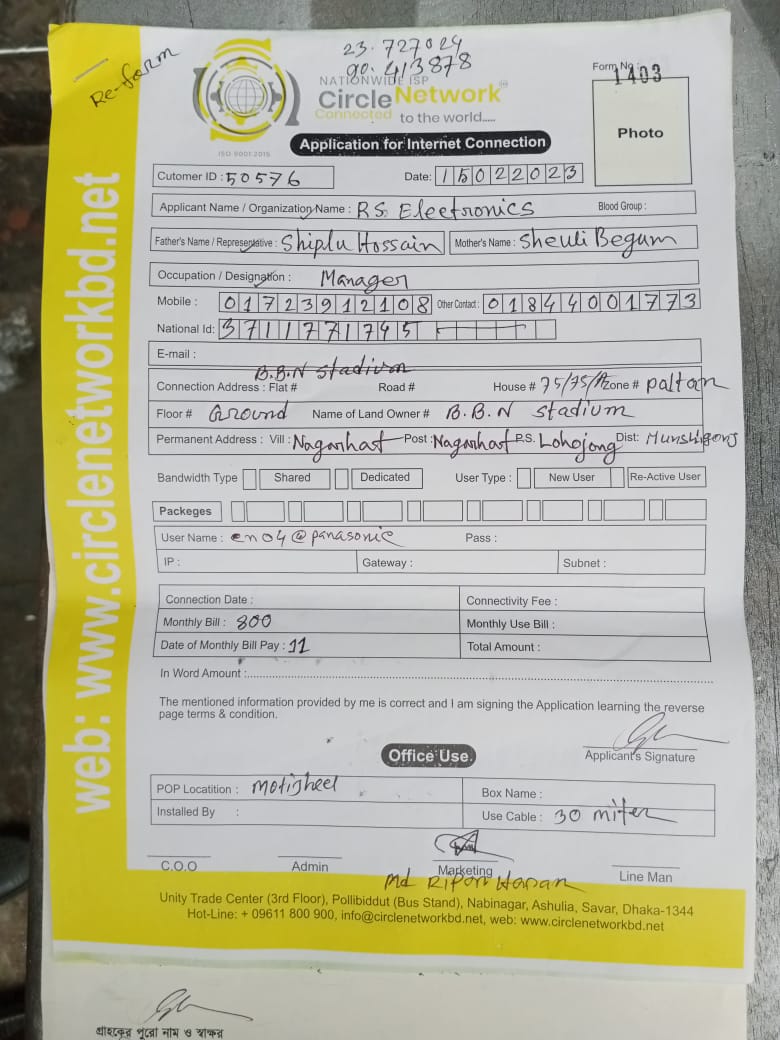 Re-form
23.727024
90.413878
NATIONWIDE ISP
Circle Network
Connected to the world.....
ISO 9001:2015
Form No: 1403
Photo
Application for Internet Connection
Cutomer ID : 50576 Date: 15022023
Applicant Name / Organization Name : R.S. Electronics Blood Group :
Father's Name / Representative : Shiplu Hossain Mother's Name : Sheuli Begum
Occupation / Designation : Manager
Mobile : 01723912108 Other Contact : 01844001773
National Id: 3711771745
E-mail :
B.B.N Stadium
Connection Address : Flat # Road # House # 75/75/A Zone # paltan
Floor # Ground Name of Land Owner # B.B.N Stadium
Permanent Address : Vill : Nagarhat Post : Nagarhat P.S. Lohojong Dist: Munshigonj
Bandwidth Type Shared Dedicated User Type : New User Re-Active User
Packeges
User Name : eno4@panasonic Pass :
IP : Gateway : Subnet :
Connection Date : Connectivity Fee :
Monthly Bill : 800 Monthly Use Bill :
Date of Monthly Bill Pay : 11 Total Amount :
In Word Amount :
The mentioned information provided by me is correct and I am signing the Application learning the reverse
page terms & condition.
Applicant's Signature
Office Use.
POP Locatition : motijheel Box Name :
Installed By : Use Cable : 30 miter
C.O.O Admin Marketing Line Man
md Ripon Hasan
Unity Trade Center (3rd Floor), Pollibiddut (Bus Stand), Nabinagar, Ashulia, Savar, Dhaka-1344
Hot-Line: + 09611 800 900, info@circlenetworkbd.net, web: www.circlenetworkbd.net
web: www.circlenetworkbd.net
গ্রাহকের পুরো নাম ও স্বাক্ষর